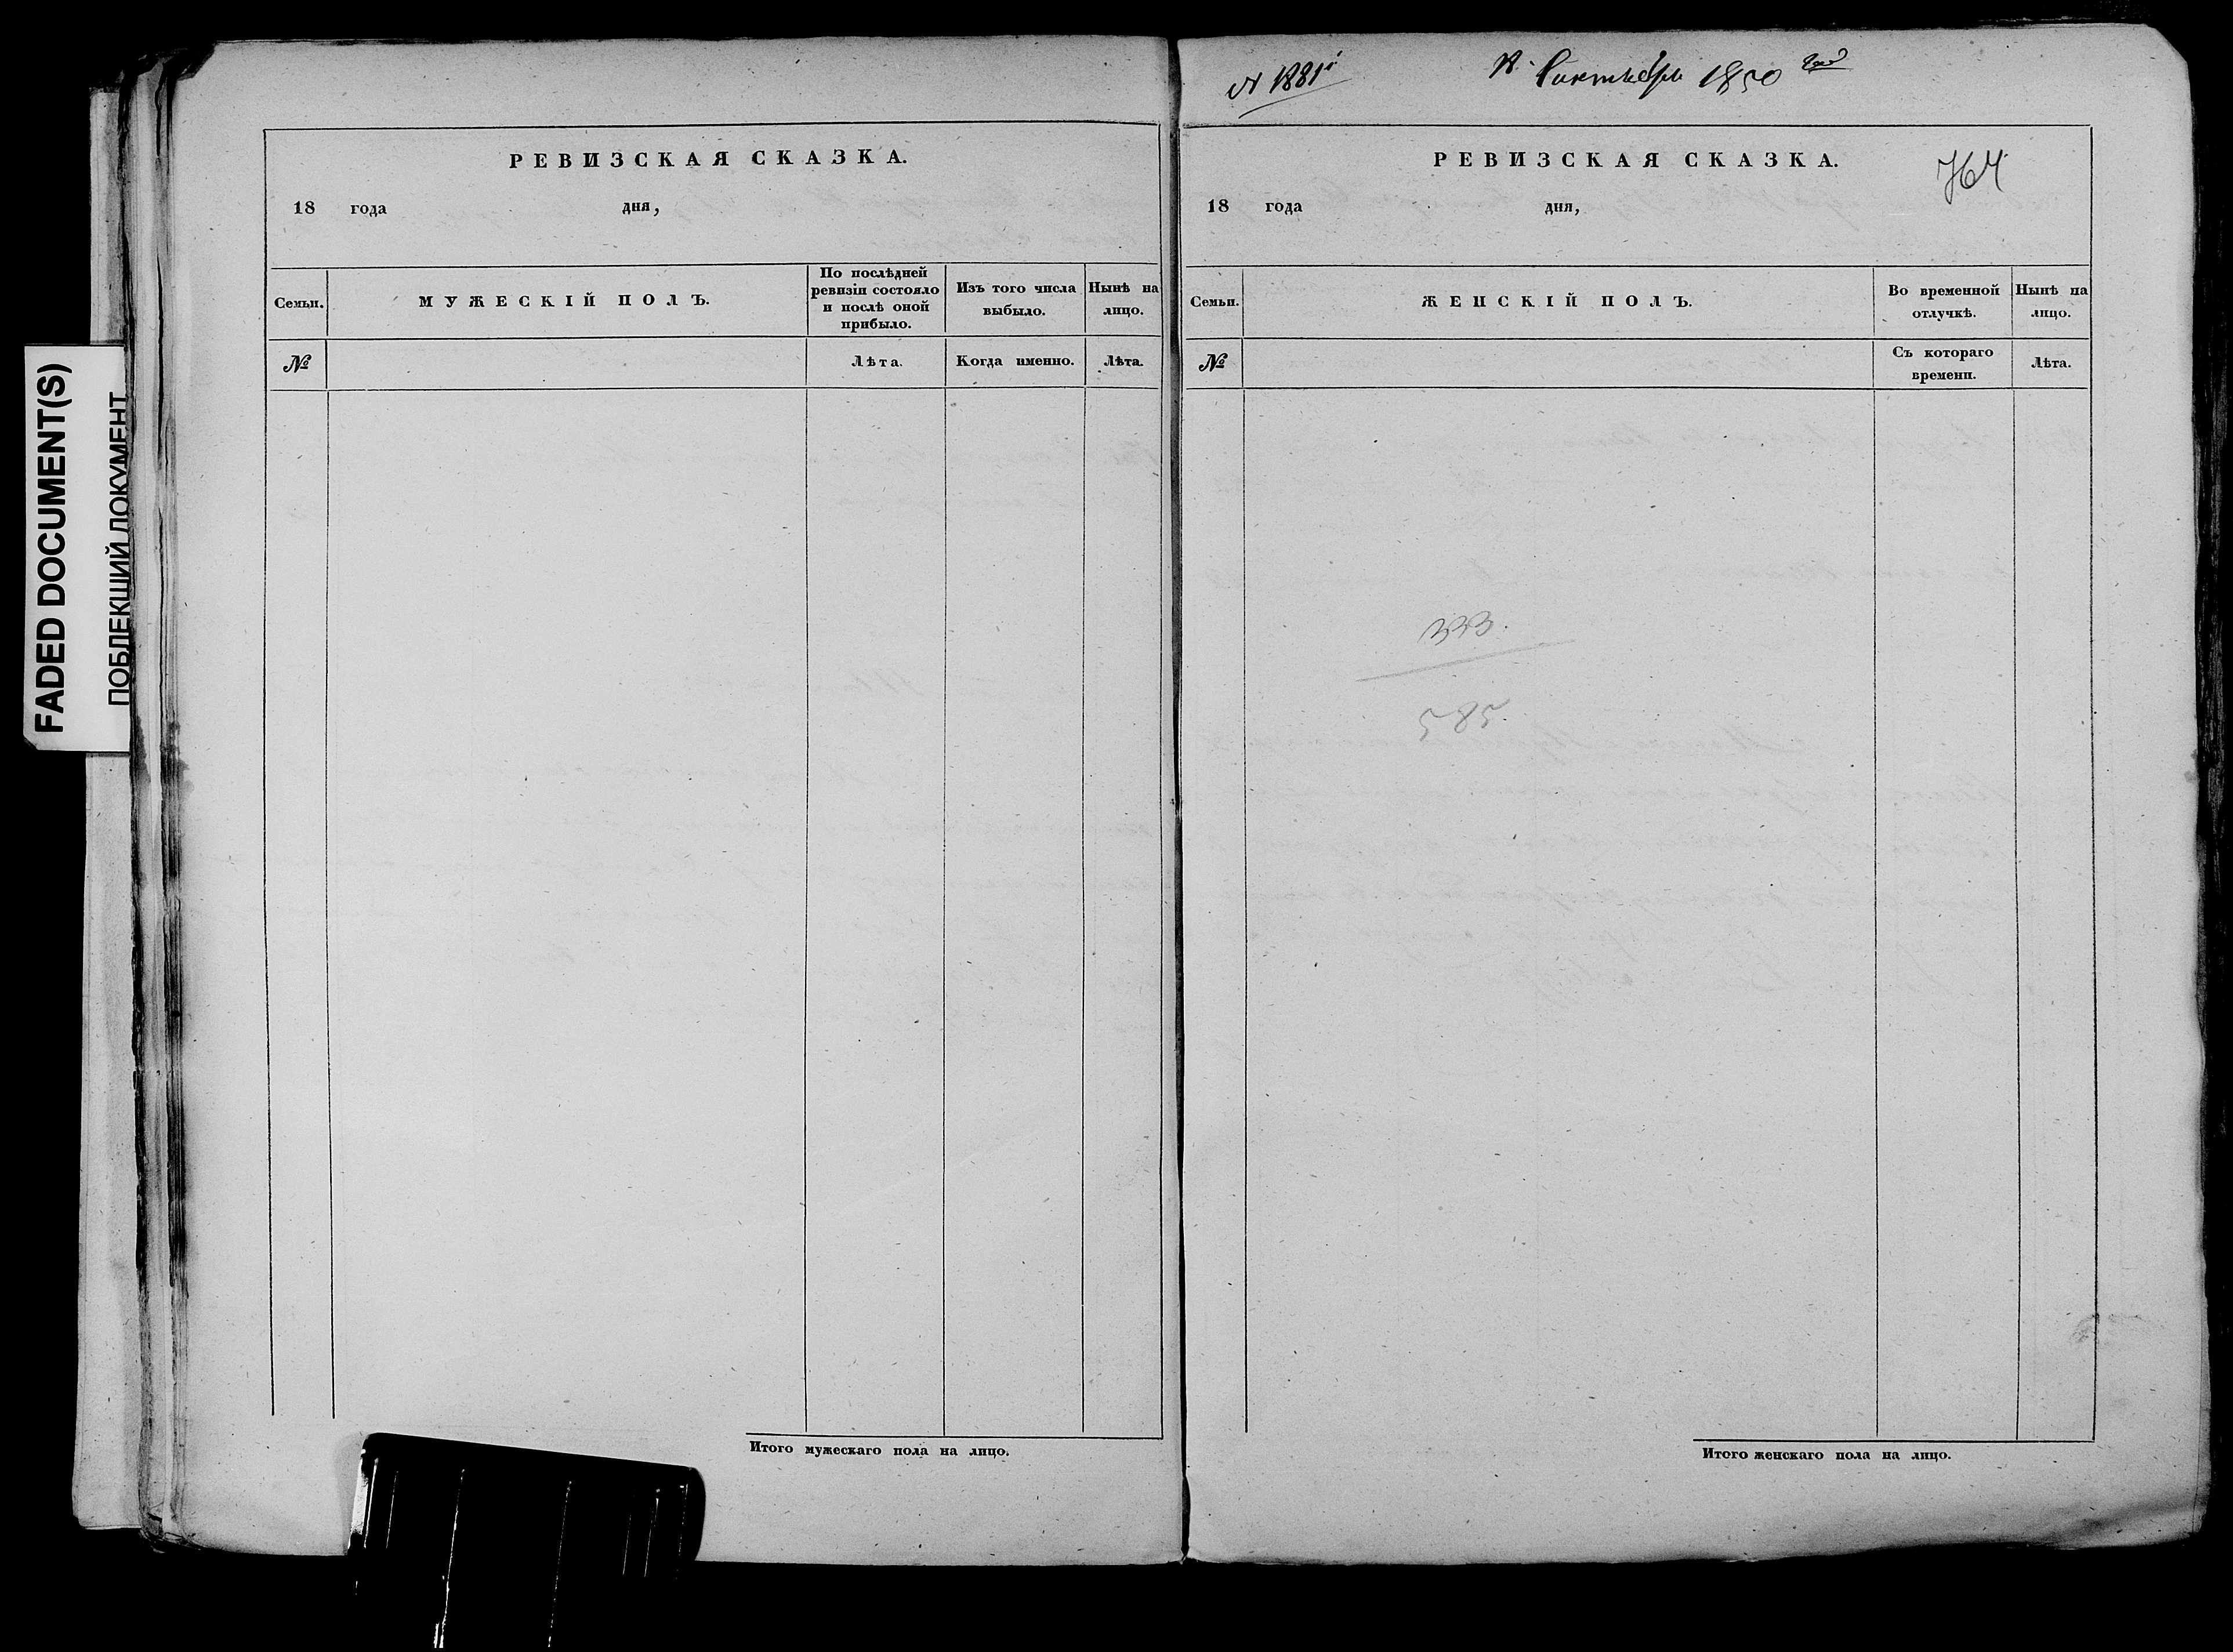 FADED DOCUMENT(S)
ПОБЛЕКШИЙ ДОКУМЕНТ
РЕВИЗСКАЯ СКАЗКА.
18 года дня,
Семьи.
МУЖЕСКІЙ ПОЛЪ.
По послѣдней
ревизіи состояло
и послѣ оной
прибыло.
Изъ того числа
выбыло.
Нынѣ на
лицо.
№
Лѣта.
Когда именно.
Лѣта.
Итого мужескаго пола на лицо.
№ 1881й
18 Октября 1850 года
РЕВИЗСКАЯ СКАЗКА.
764
18 года дня,
Семьи.
ЖЕНСКІЙ ПОЛЪ.
Во временной
отлучкѣ.
Нынѣ на
лицо.
№
Съ котораго
времени.
Лѣта.
333.
585.
Итого женскаго пола на лицо.